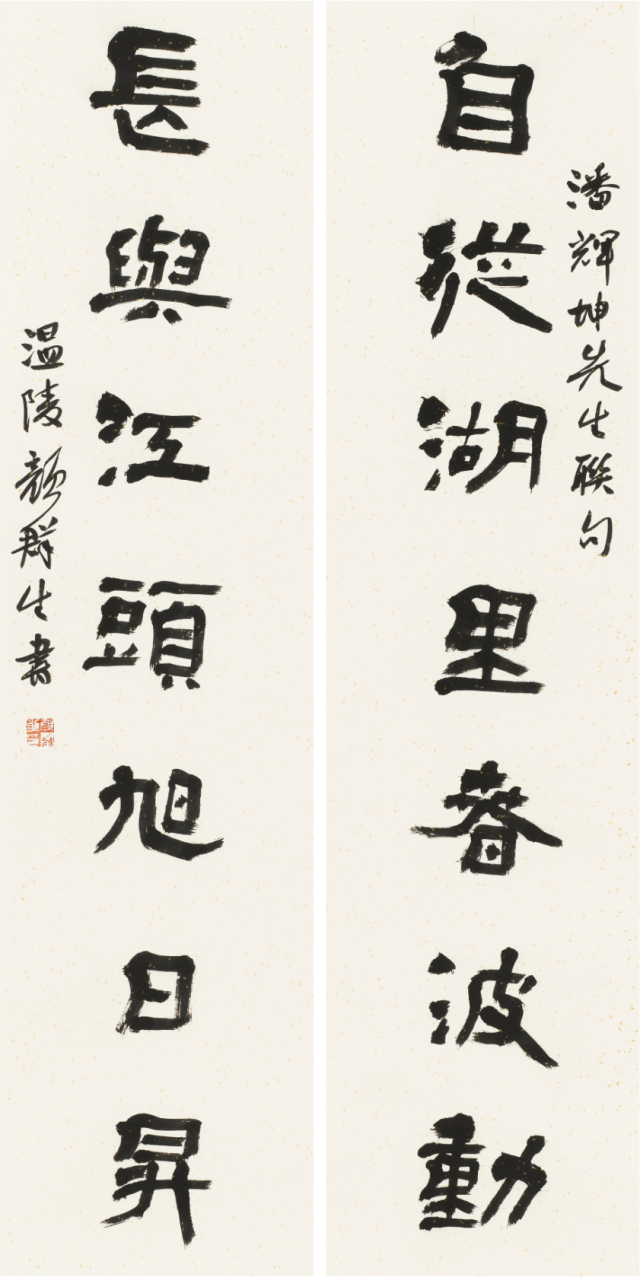 潘輝坤先生聯句
自從湖里春波動
長與江頭旭日昇
温陵顏群生書